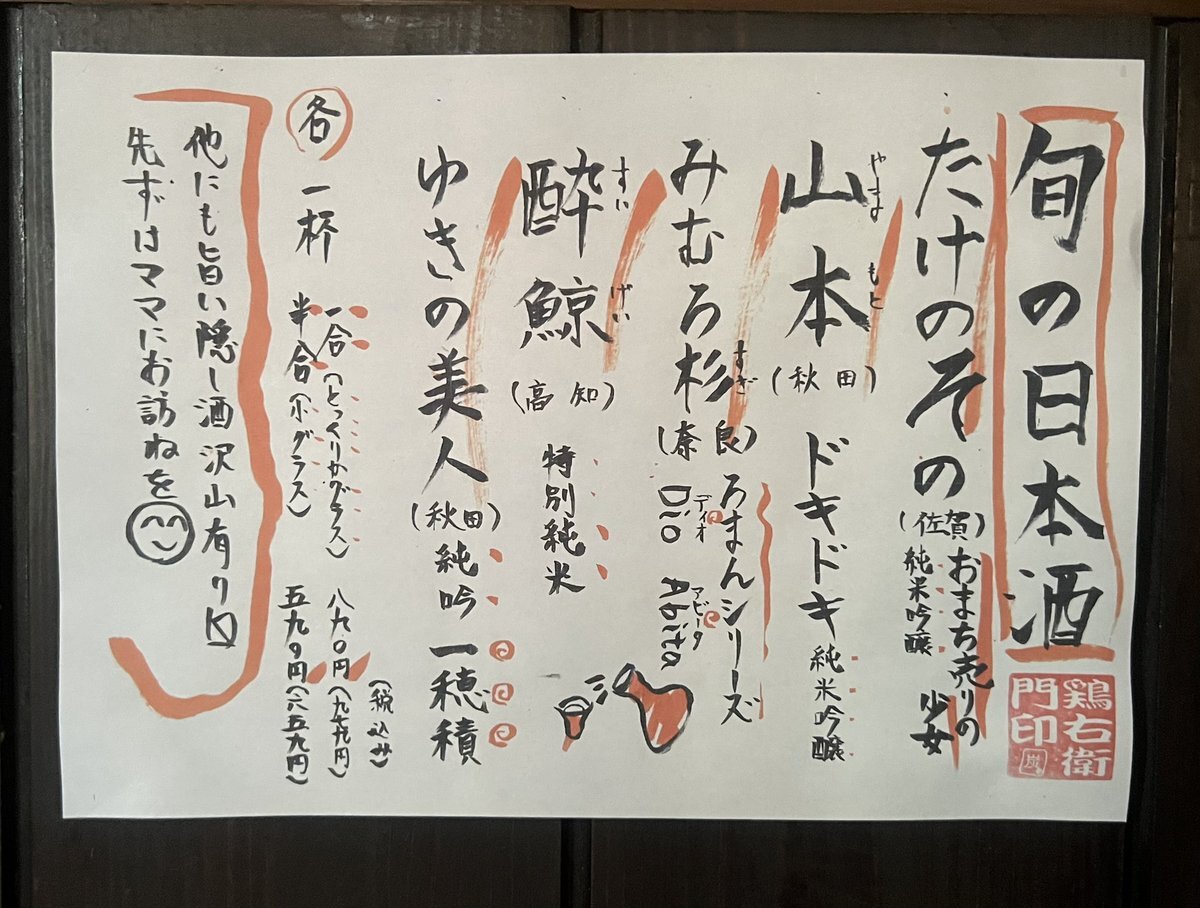 旬の日本酒
鶏右衛
門印
たけのその
(佐賀)
おまち売りの
少女
純米吟醸
山本
やまもと
(秋田)
ドキドキ
純米吟醸
みむろ杉
すぎ
(奈良)
ろまんシリーズ
Dio Abita
ディオ アビータ
酔鯨
すいげい
(高知)
特別純米
ゆきの美人
(秋田)
純吟
一穂積
(税込み)
各一杯
一合(とっくりかグラス) 八九〇円(九七九円)
半合(小グラス) 五九九円(六五九円)
他にも旨い隠し酒沢山有り〼
先ずはママにお訪ねを